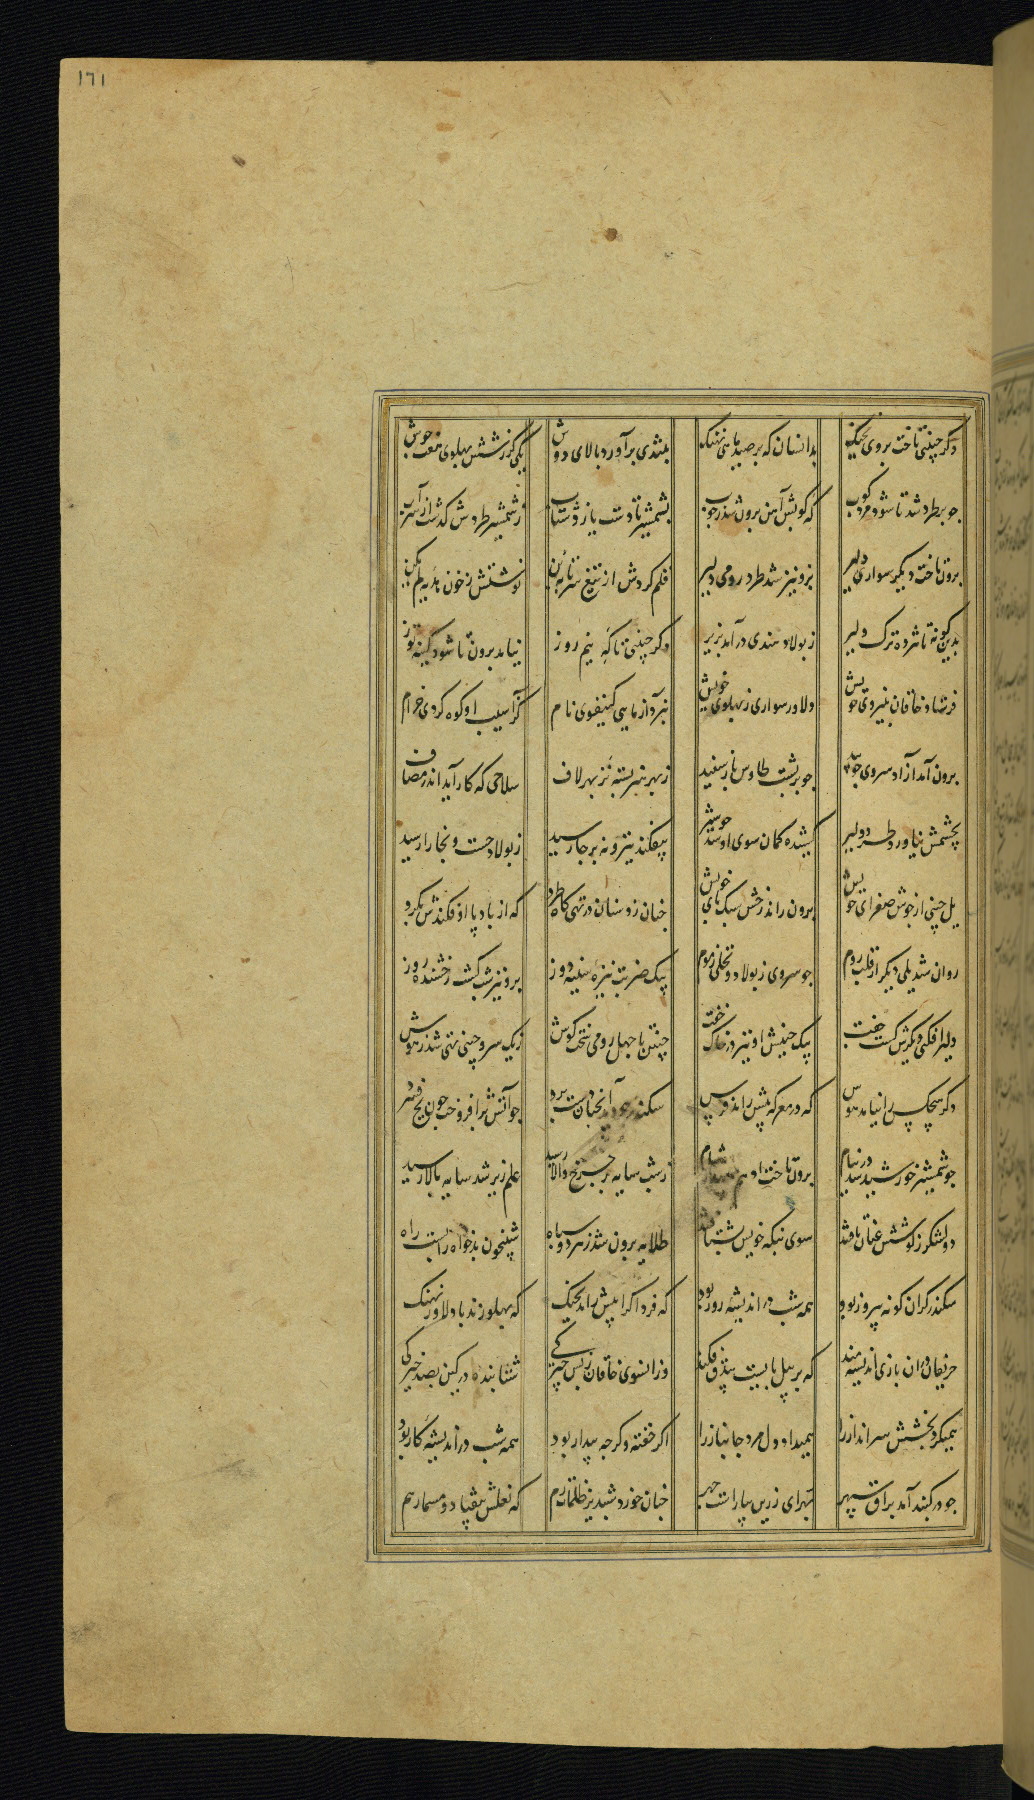 ١٦١
دگر چینی تاخت بروی بجنگ بدانسان که بر صید ماهی نهنگ بلندی برآورد بالای دوش یکی گرز شش پهلوی هفت جوش
چو بر طرد شد تا شود مرد کوب که کوبش آهن برون شد ز چوب بشمشیر تا دست یازد شتاب ز شمشیر طردش گذشت از سراب
برون تاخت دیگر سواری دلیر برو نیز شد طرد رومی دلیر قلم کردش از تیغ سر تا بن نوشتش ز خون
بدین گونه تا شرده ترک دلیر ز پولاد هندی درآمد بزیر دگر چینی تا گه نیم روز نیامد برون تا شود کینه توز
فرستاد خاقان بنیروی خویش دلاور سواری ز پهلوی خویش نبرد آزمایی کنیفوی نام کز آسیب او کوه کردی خرام
برون آمد آزاد سروی چو بید چو بر پشت طاوس باز سفید ز بهر هنر بسته نز بهر لاف سلاحی که کار آید اندر مصاف
بچشمش نیاورد طرد دلیر کشیده کمان سوی او شد چو شیر بیفکند تیر و نه بر جا رسید ز پولاد جست و بخارا رسید
یل چینی از جوش صفرای خویش برون راند رخش سبک پای خویش چنان زد سنان در تهی گاه طرد که از باد پا افکندش بگرد
روان شد یلی دیگر از قلب روم چو سروی ز پولاد و نخلی ز موم بیک ضربت نیزه سینه دوز برو نیز شب گشت رخشنده روز
دلیر افکنی دیگرش گشت جفت بیک جنبش او نیز در خاک خفت چنین تا چهل رومی سخت کوش ز یک سرو چینی تهی شد ز هوش
دگر هیچکس را نیامد هوس که در معرکه پیش راند فرس سکندر چو دید آنچنان دست برد چو آتش برافروخت چون یخ فسرد
چو شمشیر خورشید شد در نیام برون تاخت ادهم شام ز شب سایه بر چرخ والا رسید علم زیر شد سایه بالا رسید
دو لشکر ز کوشش عنان تافتند سوی بنگه خویش شتافتند طلایه برون شد ز هر دو سپاه شبیخون بدخواه را بست راه
سکندر کزان گونه پیروز بود همه شب در اندیشه روز بود که فردا کرا پیش راند بجنگ که پهلو زند با دلاور نهنگ
حریفان دران بازی اندیشه مند که بر پیل بایست بیذق فکند وزانسوی خاقان ز بس چیرگی شتابنده در کین بصد خیرگی
همیکرد بخشش سر انداز را همیداد دل مرد جانباز را اگر خفته و گر چه بیدار بود همه شب در اندیشه کار بود
چو در گنبد آمد براق سپهر بهرای زرین بیاراست چهر چنان خورد شبدیز ظلمات رم که نعلش بیفتاد و مسمار هم